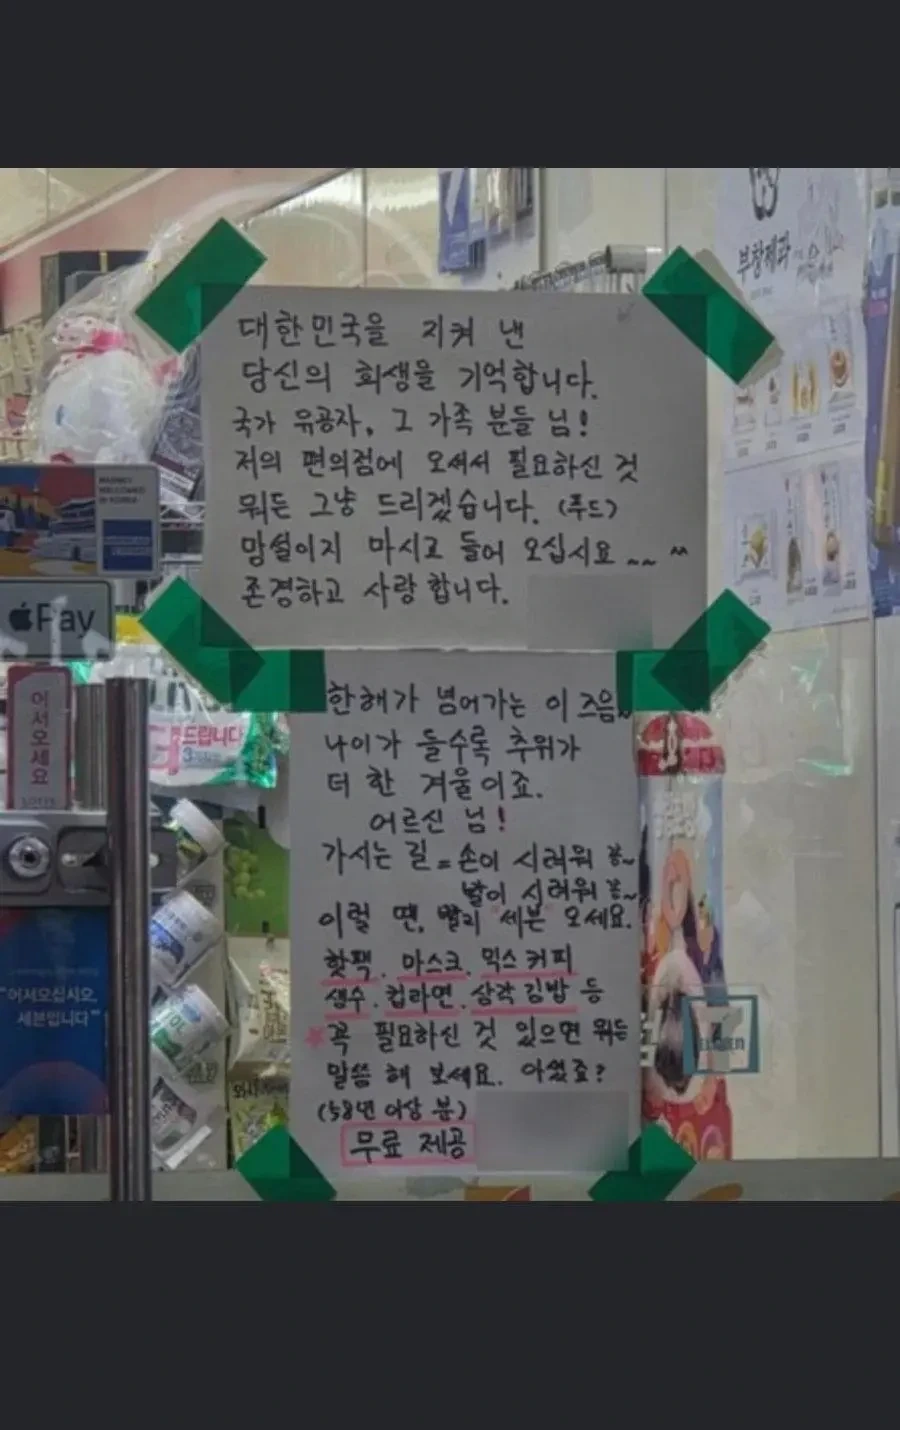 대한민국을 지켜 낸
당신의 희생을 기억합니다.
국가 유공자, 그 가족 분들 님!
저의 편의점에 오셔서 필요하신 것
뭐든 그냥 드리겠습니다. (푸드)
망설이지 마시고 들어 오십시요 ~~ ^^
존경하고 사랑합니다.
한해가 넘어가는 이 즈음~
나이가 들수록 추위가
더 한 겨울이죠.
어르신 님!
가시는 길 = 손이 시려워 꽁~
발이 시려워 꽁~
이럴 땐, 빨리 세븐 오세요.
핫팩. 마스크. 믹스 커피
생수. 컵라면. 삼각김밥 등
꼭 필요하신 것 있으면 뭐든
말씀 해 보세요. 아셨죠?
(58년 이상 분)
무료 제공
부창제과
Pay
어서오세요
드립니다
"어서오십시오,
세븐입니다"